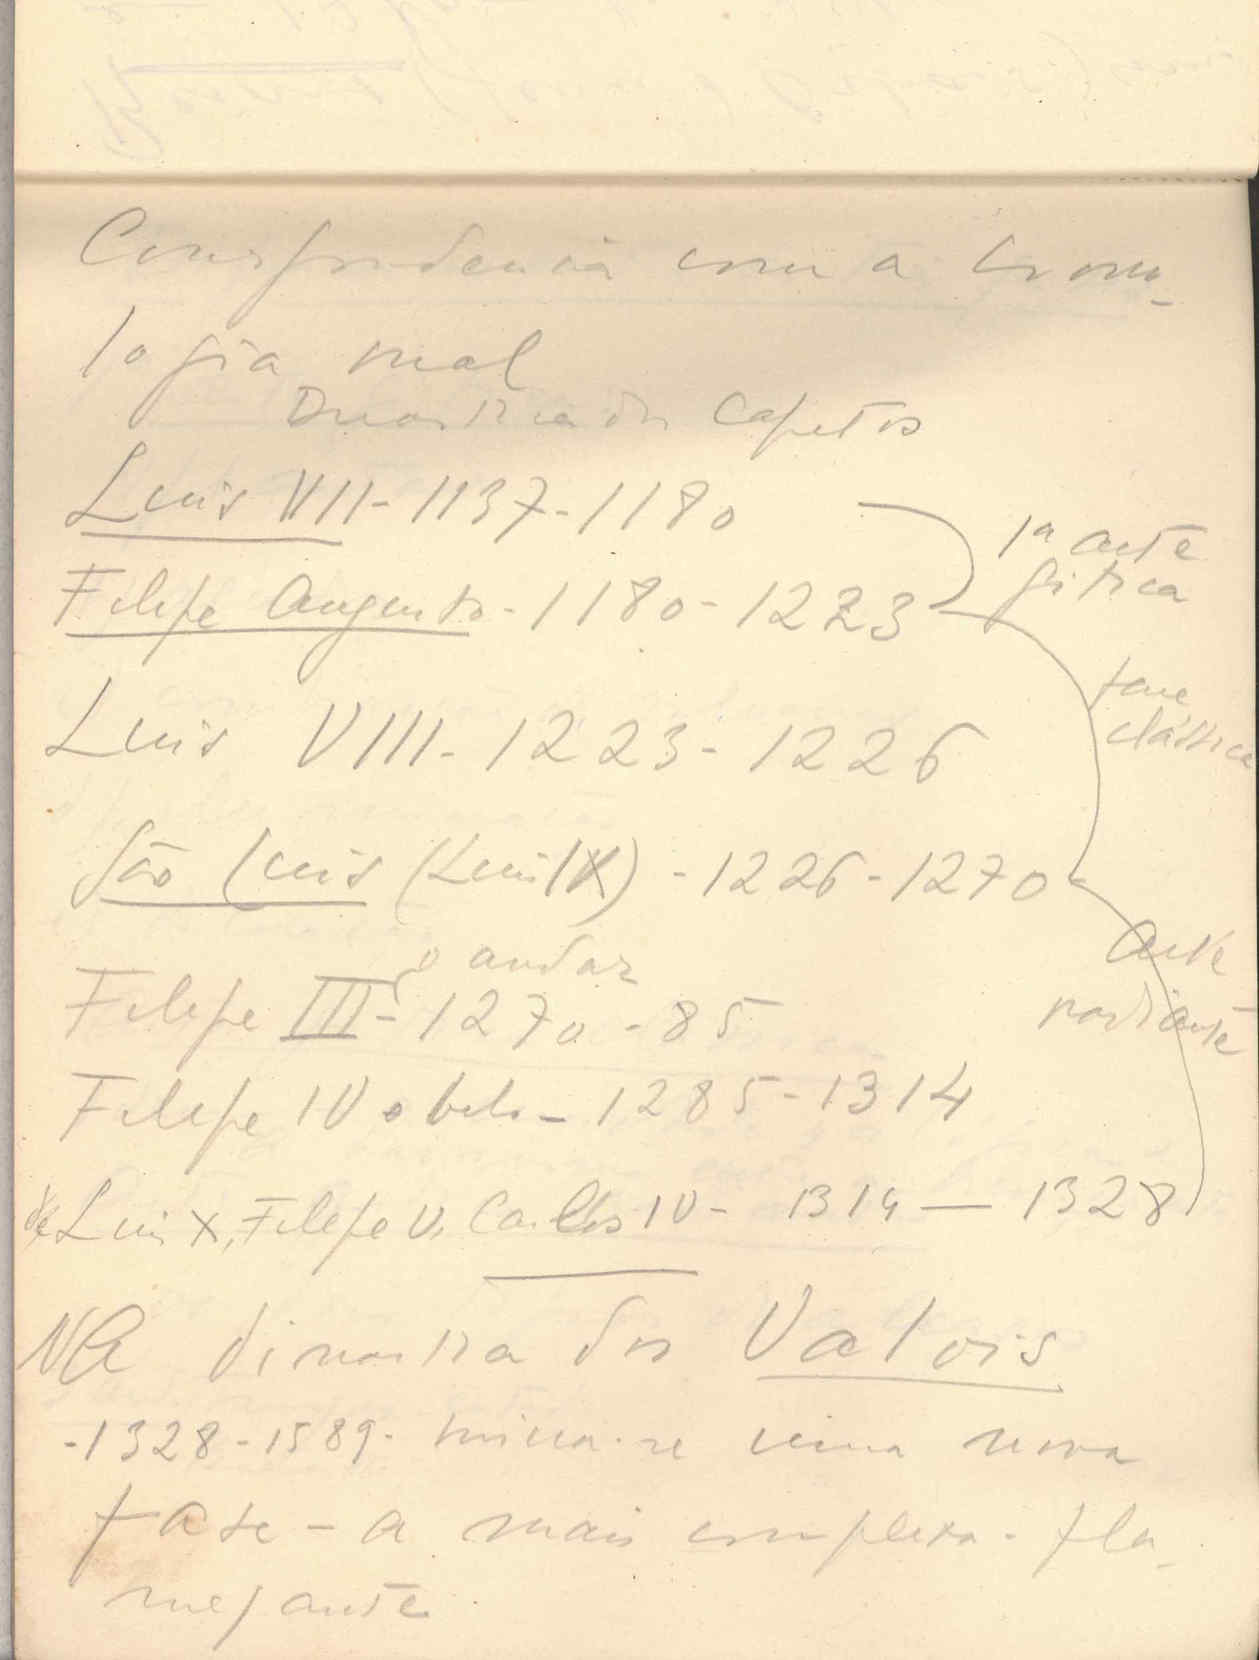 Correspondencia com a crono-
logia real
Dinastia dos Capetos
Luis VII - 1137 - 1180
1ª arte
gotica
Filipe Augusto - 1180 - 1223
fase
clássica
Luis VIII - 1223 - 1226
São Luis (Luis IX) - 1226 - 1270
arte
radiante
Filipe III - 1270 - 85
Filipe IV o belo - 1285 - 1314
Luis X, Filipe V, Carlos IV - 1314 — 1328
Na dinastia dos Valois
- 1328 - 1589 - inicia-se uma nova
fase - a mais complexa - fla-
mejante